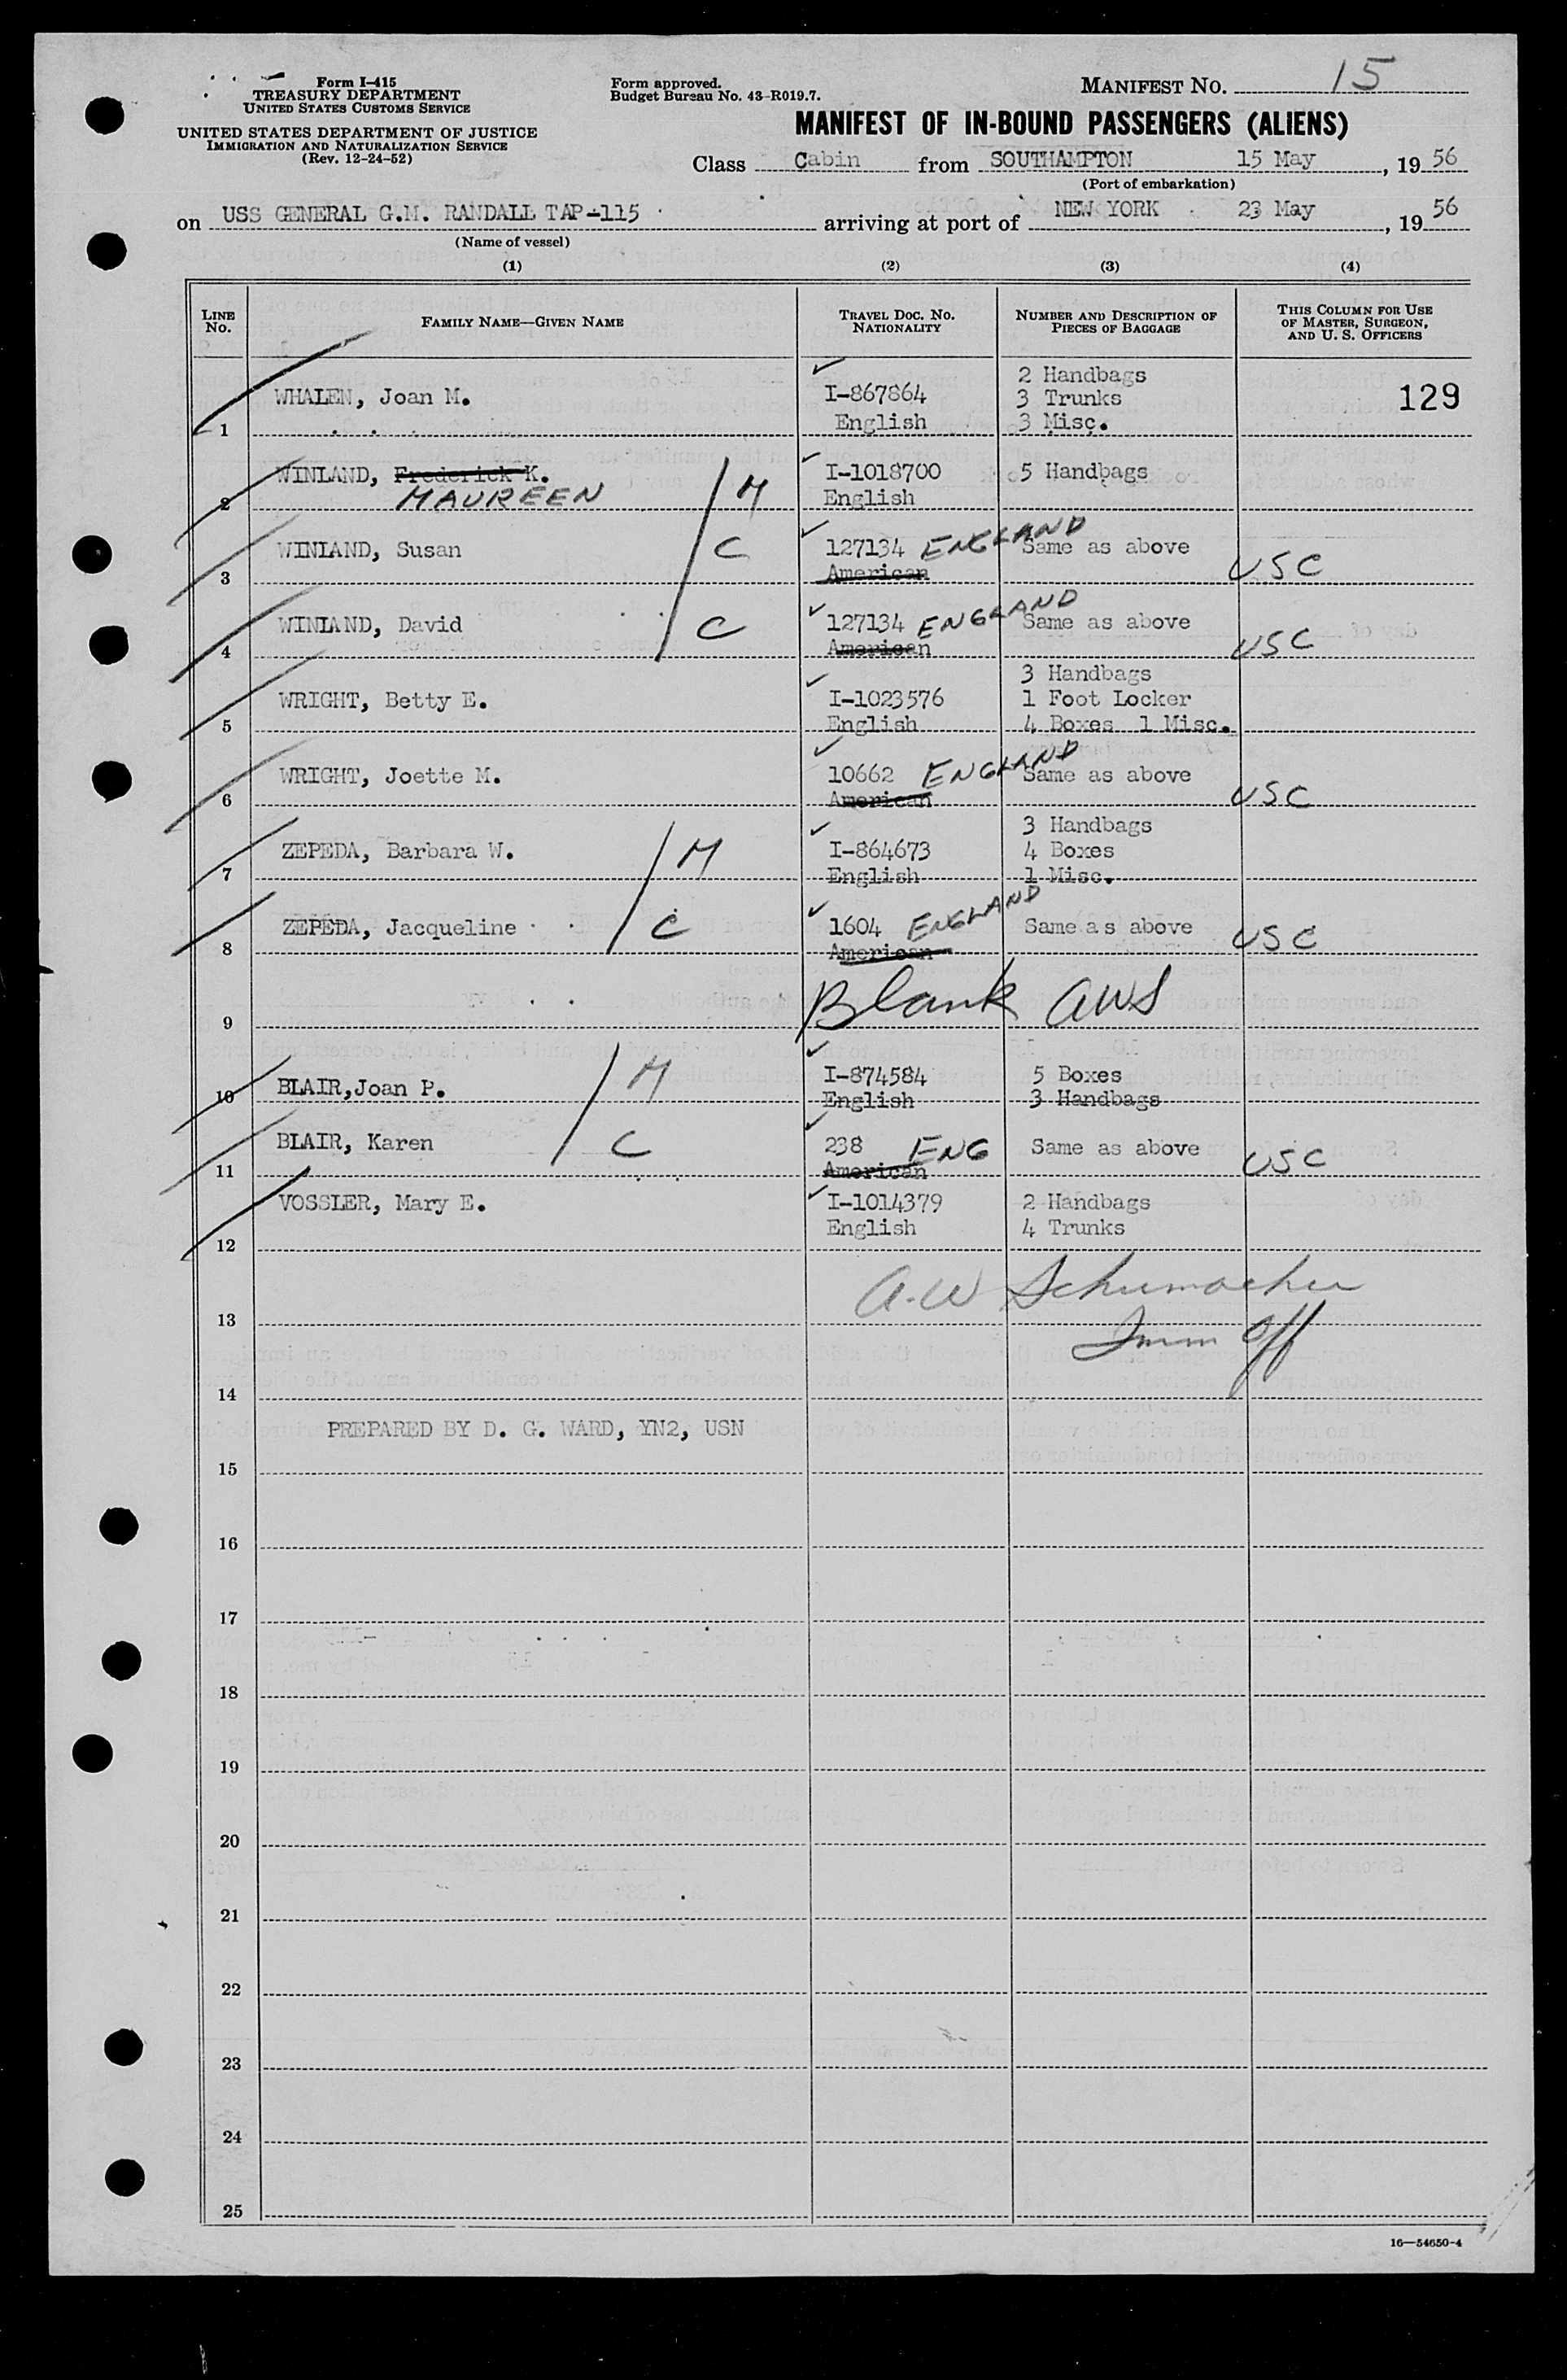 Form I-415
TREASURY DEPARTMENT
UNITED STATES CUSTOMS SERVICE
UNITED STATES DEPARTMENT OF JUSTICE
IMMIGRATION AND NATURALIZATION SERVICE
(Rev. 12-24-52)
Form approved.
Budget Bureau No. 43-R019.7.
MANIFEST NO. 15
MANIFEST OF IN-BOUND PASSENGERS (ALIENS)
Class Cabin from SOUTHAMPTON 15 May, 19 56
(Port of embarkation)
on USS GENERAL G.M. RANDALL TAP-115 arriving at port of NEW YORK 23 May, 19 56
(Name of vessel)
(1) (2) (3) (4)
LINE NO. FAMILY NAME—GIVEN NAME TRAVEL DOC. NO. NATIONALITY NUMBER AND DESCRIPTION OF PIECES OF BAGGAGE THIS COLUMN FOR USE OF MASTER, SURGEON, AND U. S. OFFICERS
2 Handbags
WHALEN, Joan M. I-867864 3 Trunks 129
1 English 3 Misc.
WINLAND, Frederick K. I-1018700 5 Handbags
2 MAUREEN M English
WINLAND, Susan C 127134 ENGLAND Same as above
3 American USC
WINLAND, David C 127134 ENGLAND Same as above
4 American USC
3 Handbags
WRIGHT, Betty E. I-1023576 1 Foot Locker
5 English 4 Boxes 1 Misc.
WRIGHT, Joette M. 10662 ENGLAND Same as above
6 American USC
3 Handbags
ZEPEDA, Barbara W. M I-864673 4 Boxes
7 English 1 Misc.
ZEPEDA, Jacqueline C 1604 ENGLAND Same as above
8 American USC
9 Blank AWS
BLAIR,Joan P. M I-874584 5 Boxes
10 English 3 Handbags
BLAIR, Karen C 238 ENG Same as above
11 American USC
VOSSLER, Mary E. I-1014379 2 Handbags
12 English 4 Trunks
A.W Schumacher
13
Imm Off
14
PREPARED BY D. G. WARD, YN2, USN
15
16
17
18
19
20
21
22
23
24
25
16—54650-4